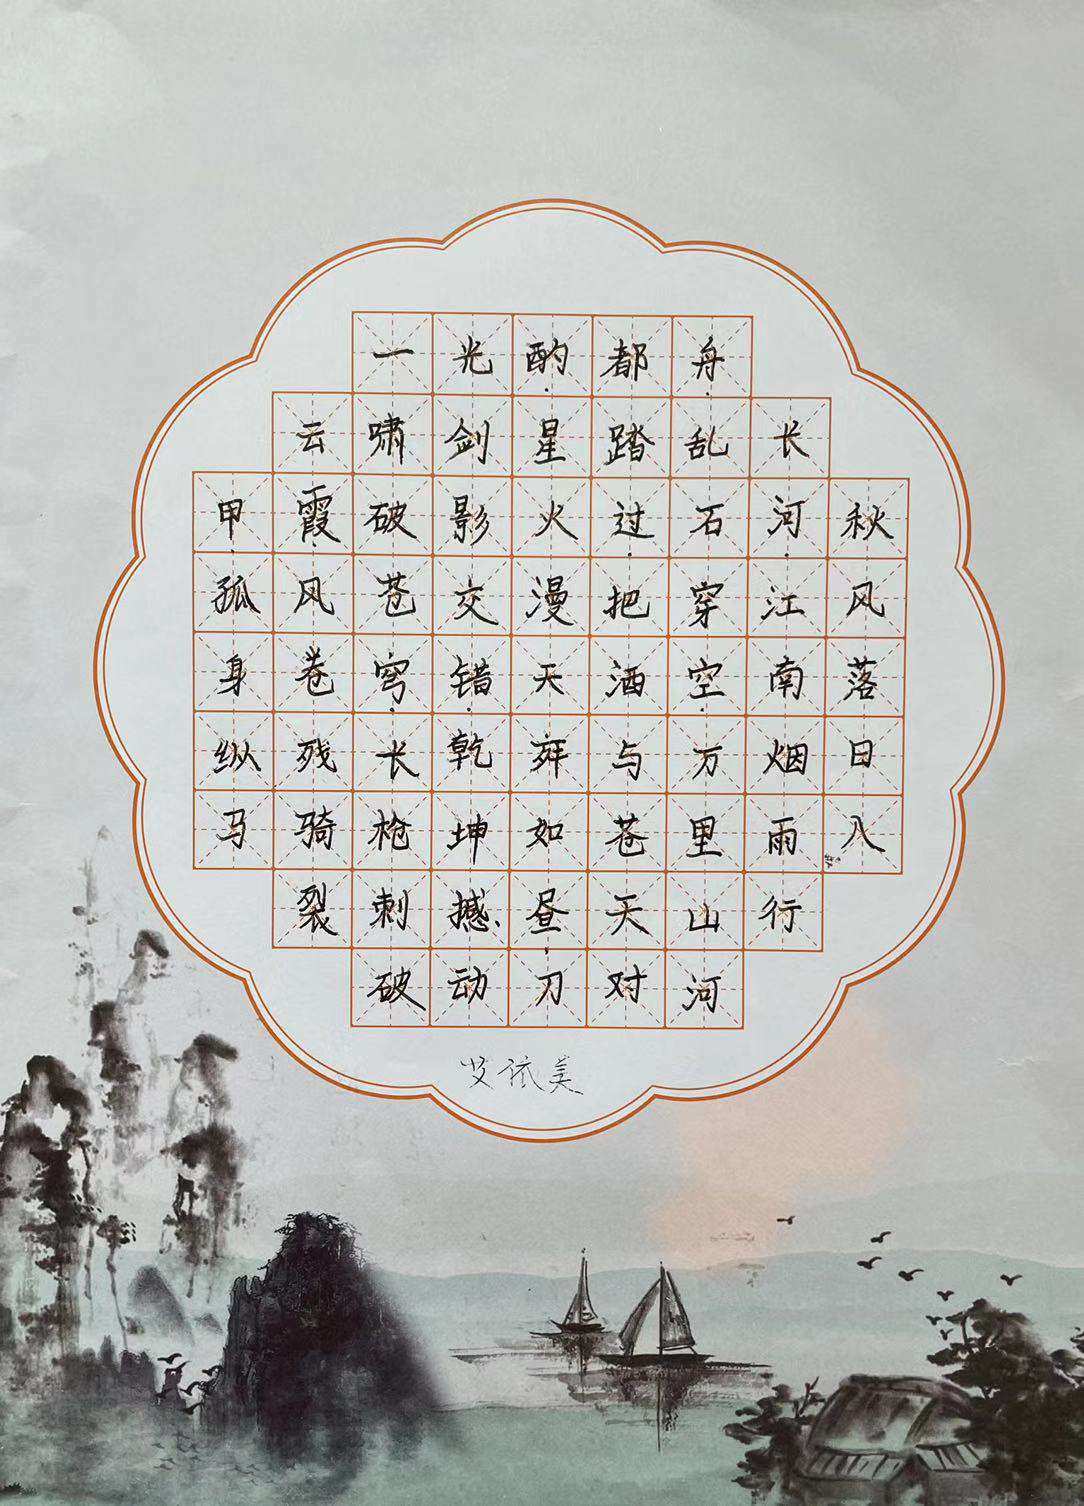 秋风落日八
长河江南烟雨行
舟乱石穿空万里山河
都踏过把酒与苍天对
酌星火漫天舞如昼刀
光剑影交错乾坤撼动
一啸破苍穹长枪刺破
云霞风卷残骑裂
甲孤身纵马
艾依美